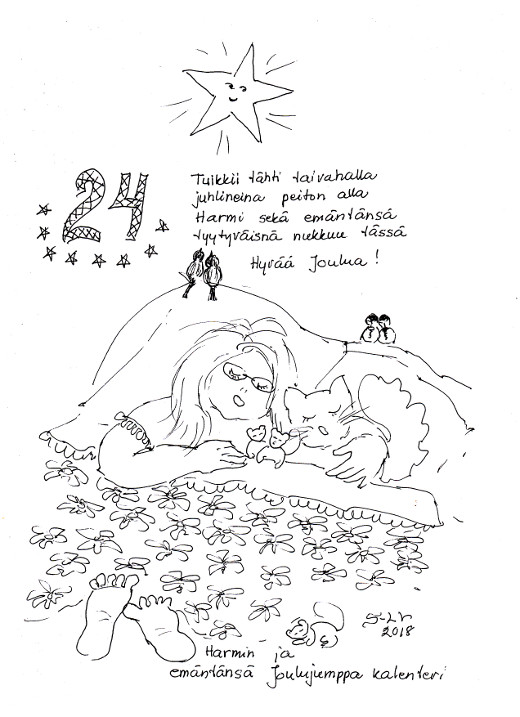 24
Tuikkii tähti taivahalla
juhlineina peiton alla
Harmi sekä emäntänsä
tyytyväisnä nukkuu tässä
Hyvää Joulua!
S-LV
2018
Harmin ja
emäntänsä Joulujumppa kalenteri